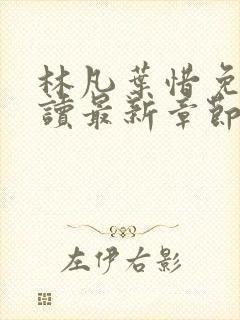 林凡葉惜免
讀最新章節
左伊右影